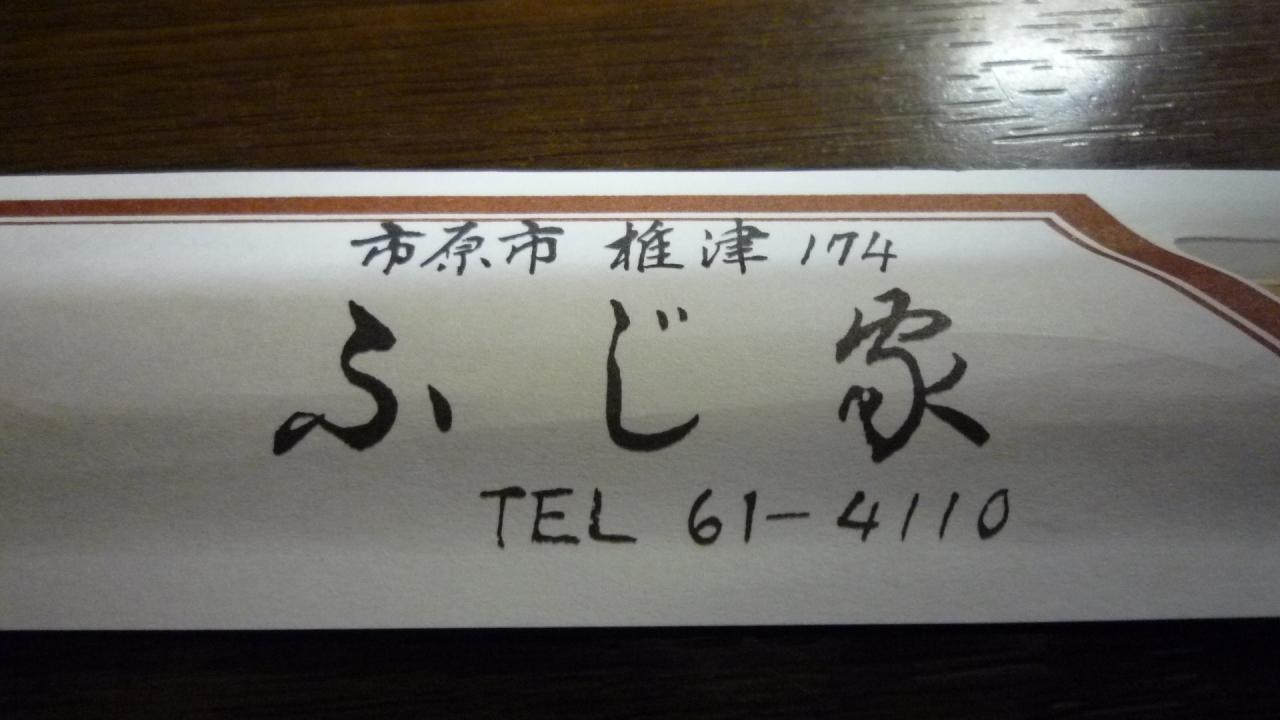 市原市 椎津 174
ふじ家
TEL 61-4110